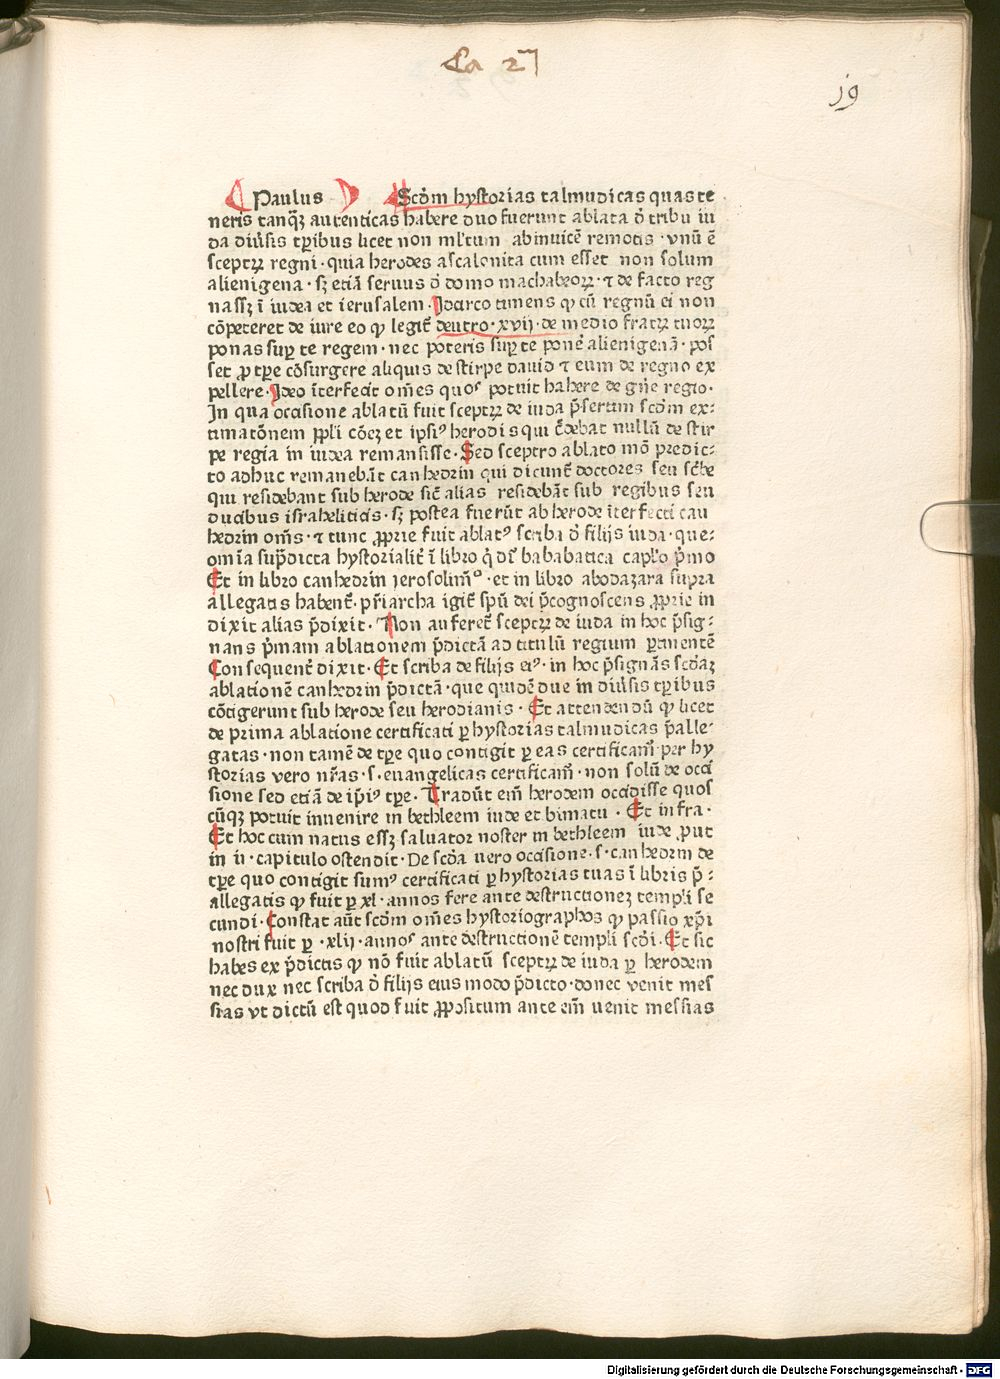 Ca 27
19
Paulus Scd̄m hystorias talmudicas quas te
neris tanqꝫ autenticas habere duo fuerunt ablata d̄ tribu iu
da diūsis tp̄ribus licet non ml̄tum abinuicē remotis · vnū ē
sceptꝝ regni · quia herodes ascalonita cum esset non solum
alienigena · sꝫ etiā seruus d̄ domo machabeoꝝ · ⁊ de facto reg
nassꝫ ī iudea et ierusalem · Idarco timens ꝙ cū regnū ei non
cōpeteret de iure eo ꝙ legit᷑ deutro · xvij · de medio fratꝝ tuoꝝ
ponas suꝑ te regem · nec poteris suꝑ te ponē alienigenā · pos
set ꝓ tp̄re cōsurgere aliquis de stirpe dauid ⁊ eum de regno ex
pellere · Ideo īterfecit om̄es quos potuit habere de gn̄e regio ·
In qua occasione ablatū fuit sceptꝝ de iuda p̄sertim scd̄m ex:
timatōnem pp̄li cōeꝫ et ipsiꝰ herodis qui c̄debat nullū de stir
pe regia in iudea remansisse · Sed sceptro ablato mō predic:
to adhuc remanebāt canhedrin qui dicunt᷑ doctores seu sc̄be
qui residebant sub herode sic̄ alias residebāt sub regibus seu
ducibus israheliticis · sꝫ postea fuerūt ab herode īterfecti cau
hedrin om̄s · ⁊ tunc ꝓprie fuit ablatꝰ scriba d̄ filijs iuda · que·
om̄ia sup̄dicta hystorialit᷑ ī libro q̄ dr̄ bababatica capl̄o p̄mo
Et in libro canhedrin jerosolim̄º · et in libro abodazara supra
allegatis habent᷑ · pr̄iarcha igit᷑ spū dei p̄cognoscens ꝓprie in
dixit alias p̄dixit · Non auferet᷑ sceptꝝ de iuda in hoc p̄sig·
nans p̄mam ablationem p̄dictā ad titulū regium ꝑtinentē
Consequent᷑ dixit · Et scriba de filijs eiꝰ · in hoc p̄signās scd̄aꝫ
ablationē canhedrin p̄dictā · que quidē due in diūsis tp̄ribus
cōtigerunt sub herode seu herodianis · Et attendendū ꝙ licet
de prima ablatione certificati ꝑ hystorias talmudicas p̄alle·
gatas · non tamē de tp̄re quo contigit ꝑ eas certificam᷑ · per hy
storias vero nr̄as · s · euangelicas certificam᷑ · non solū de occi
sione sed etiā de ip̄iꝰ tp̄re · Tradūt em̄ herodem occidisse quos
cūqꝫ potuit inuenire in bethleem iude et bimatu · Et infra ·
Et hoc cum natus essꝫ saluator noster in bethleem iude ꝓut
in ij · capitulo ostendit · De scd̄a uero occisione · s · canhedrin de
tp̄re quo contigit sumꝰ certificati ꝑ hystorias tuas ī libris p̄:
allegatis ꝙ fuit ꝑ xl · annos fere ante destructioneꝫ templi se
cundi · Constat aūt scd̄m om̄es hystoriographos ꝙ passio xp̄i
nostri fuit ꝑ · xlij · annos ante destructionē templi scd̄i · Et sic
habes ex p̄dictis ꝙ nō fuit ablatū sceptꝝ de iuda ꝑ herodem
nec dux nec scriba d̄ filijs eius modo p̄dicto · donec venit mes
sias vt dictū est quod fuit ꝓpositum ante em̄ uenit messias
Digitalisierung gefördert durch die Deutsche Forschungsgemeinschaft - DFG